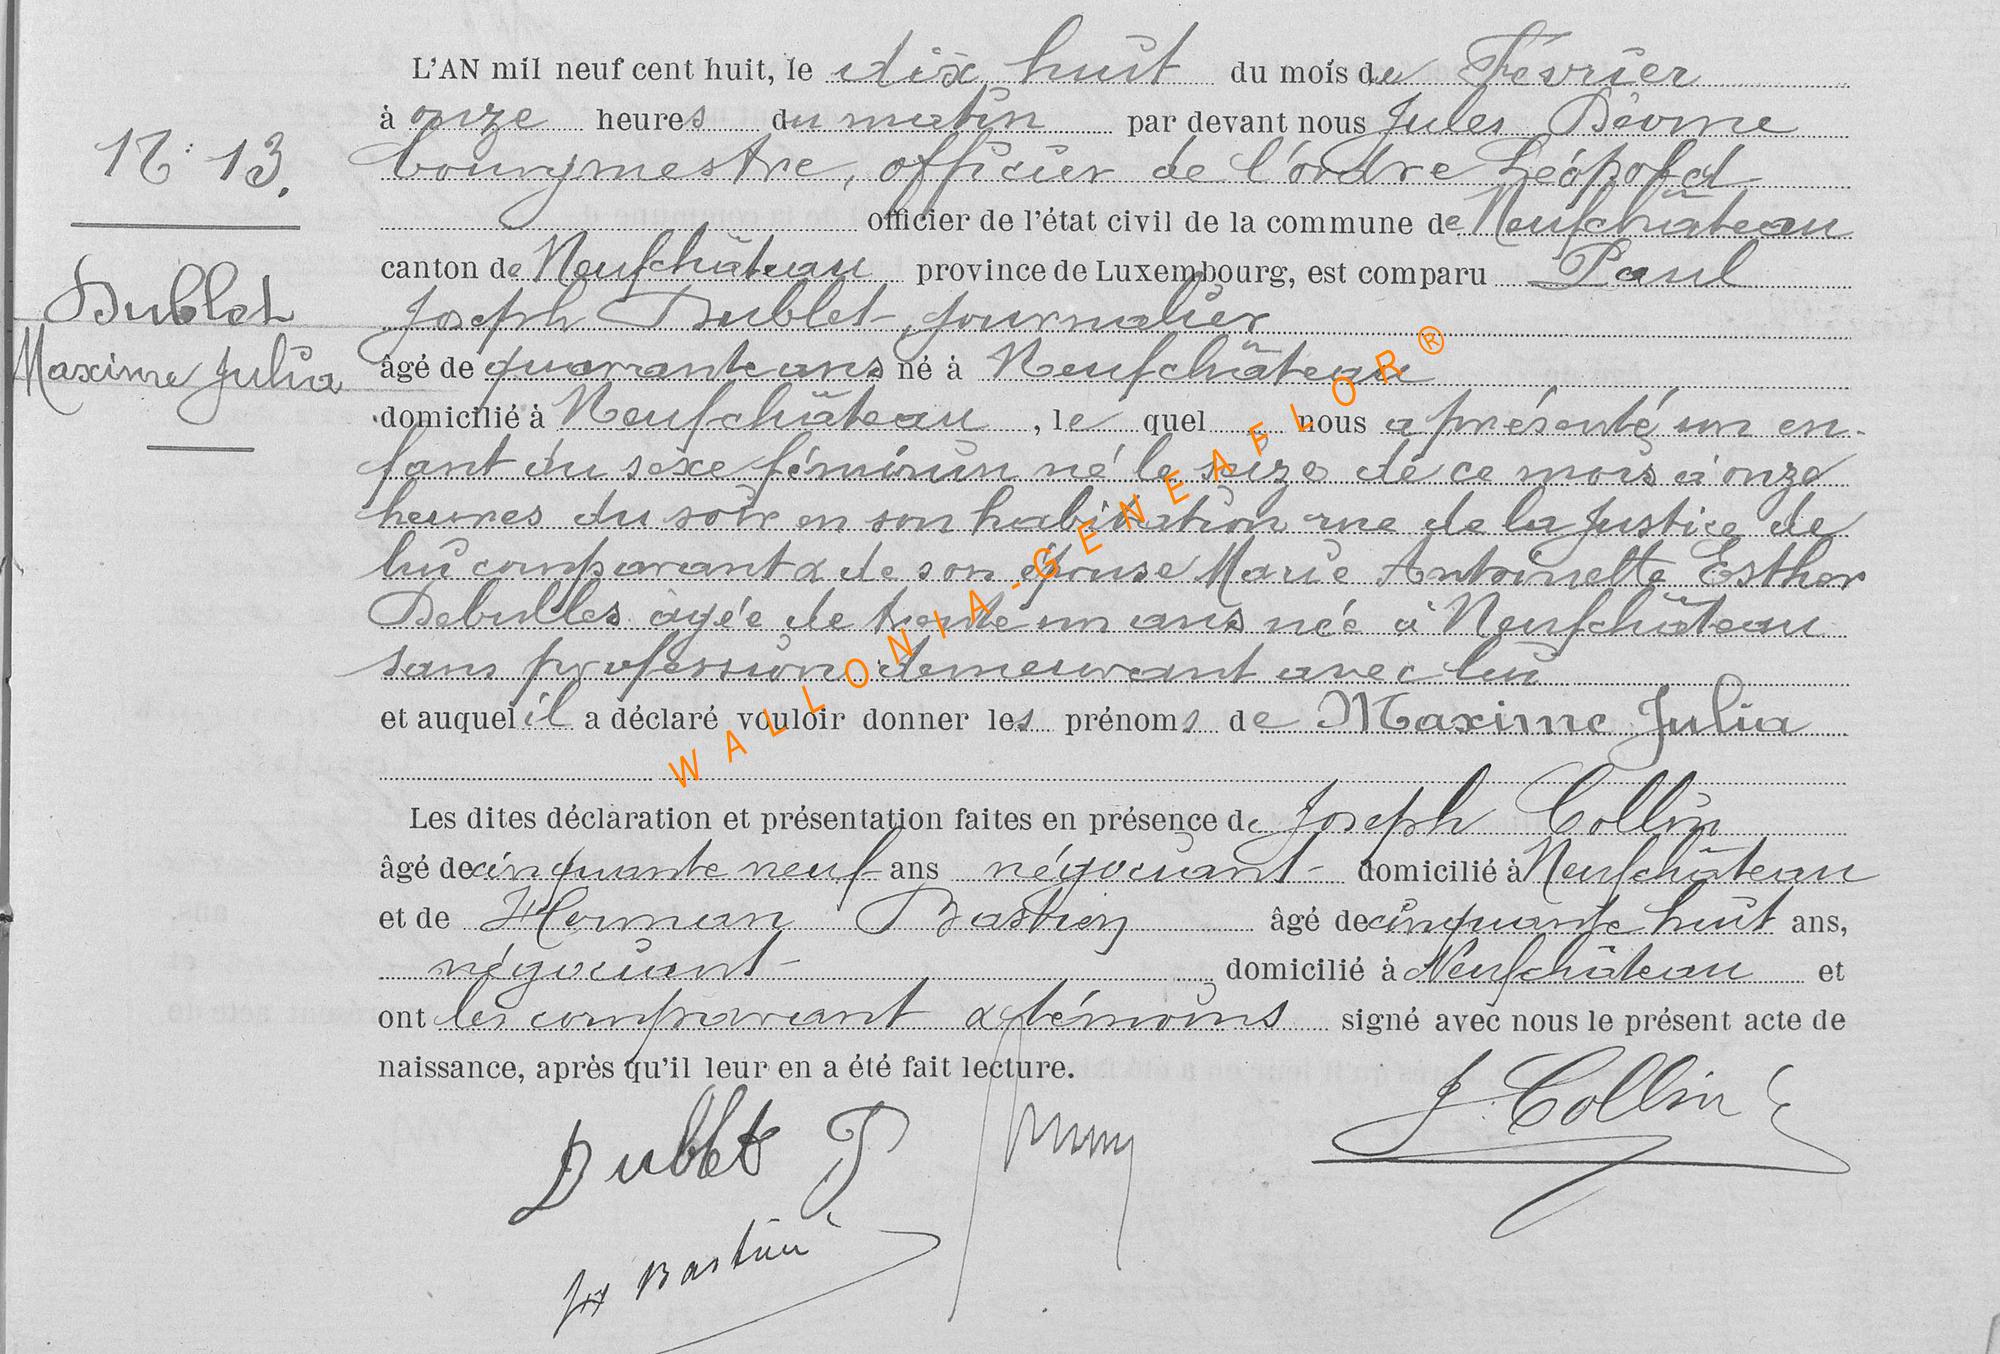 L'AN mil neuf cent huit, le dix huit du mois de Février
à onze heures du matin par devant nous Jules
N° 13.
bourgmestre, officier de l'ordre Léopold
officier de l'état civil de la commune de Neufchâteau
canton de Neufchâteau province de Luxembourg, est comparu Paul
Dublet
Joseph Dublet, journalier
Maxime Julia
âgé de quarante ans né à Neufchâteau
domicilié à Neufchâteau, le quel nous a présenté un en-
fant du sexe féminin né le seize de ce mois à onze
heures du soir en son habitation rue de la Justice de
lui comparant & de son épouse Marie Antoinette Esther
Debulles âgée de trente un ans née à Neufchâteau
sans profession demeurant avec lui
et auquel il a déclaré vouloir donner les prénoms de Maxime Julia
WALLONIA-GENEAFLOR®
Les dites déclaration et présentation faites en présence de Joseph Collin
âgé de cinquante neuf ans négociant domicilié à Neufchâteau
et de Herman Bastien âgé de cinquante huit ans,
négociant, domicilié à Neufchâteau et
ont les comparant & témoins signé avec nous le présent acte de
naissance, après qu'il leur en a été fait lecture.
J. Collin
Dublet P
Bastien